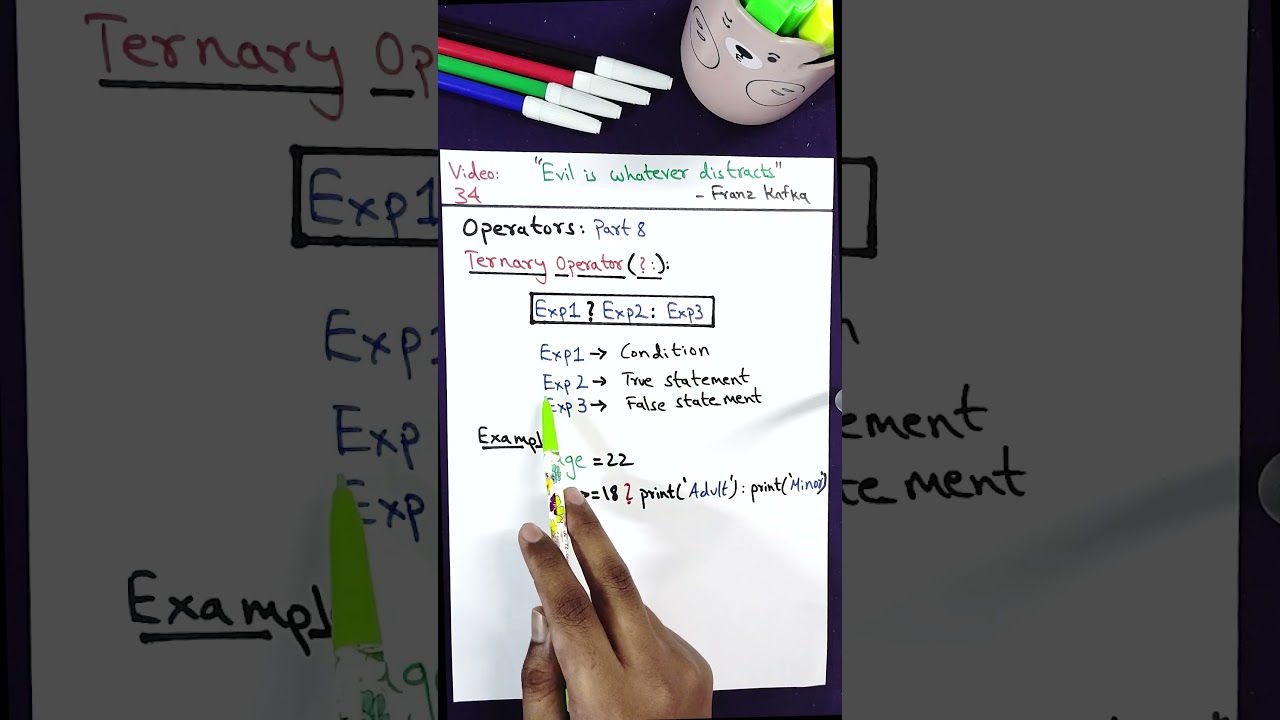 Video: "Evil is whatever distracts"
34 - Franz Kafka
Operators: Part 8
Ternary Operator (? :):
Exp1 ? Exp2 : Exp3
Exp1 → Condition
Exp 2 → True statement
Exp 3 → False statement
Exampl
age = 22
>=18 ? print('Adult') : print('Minor')